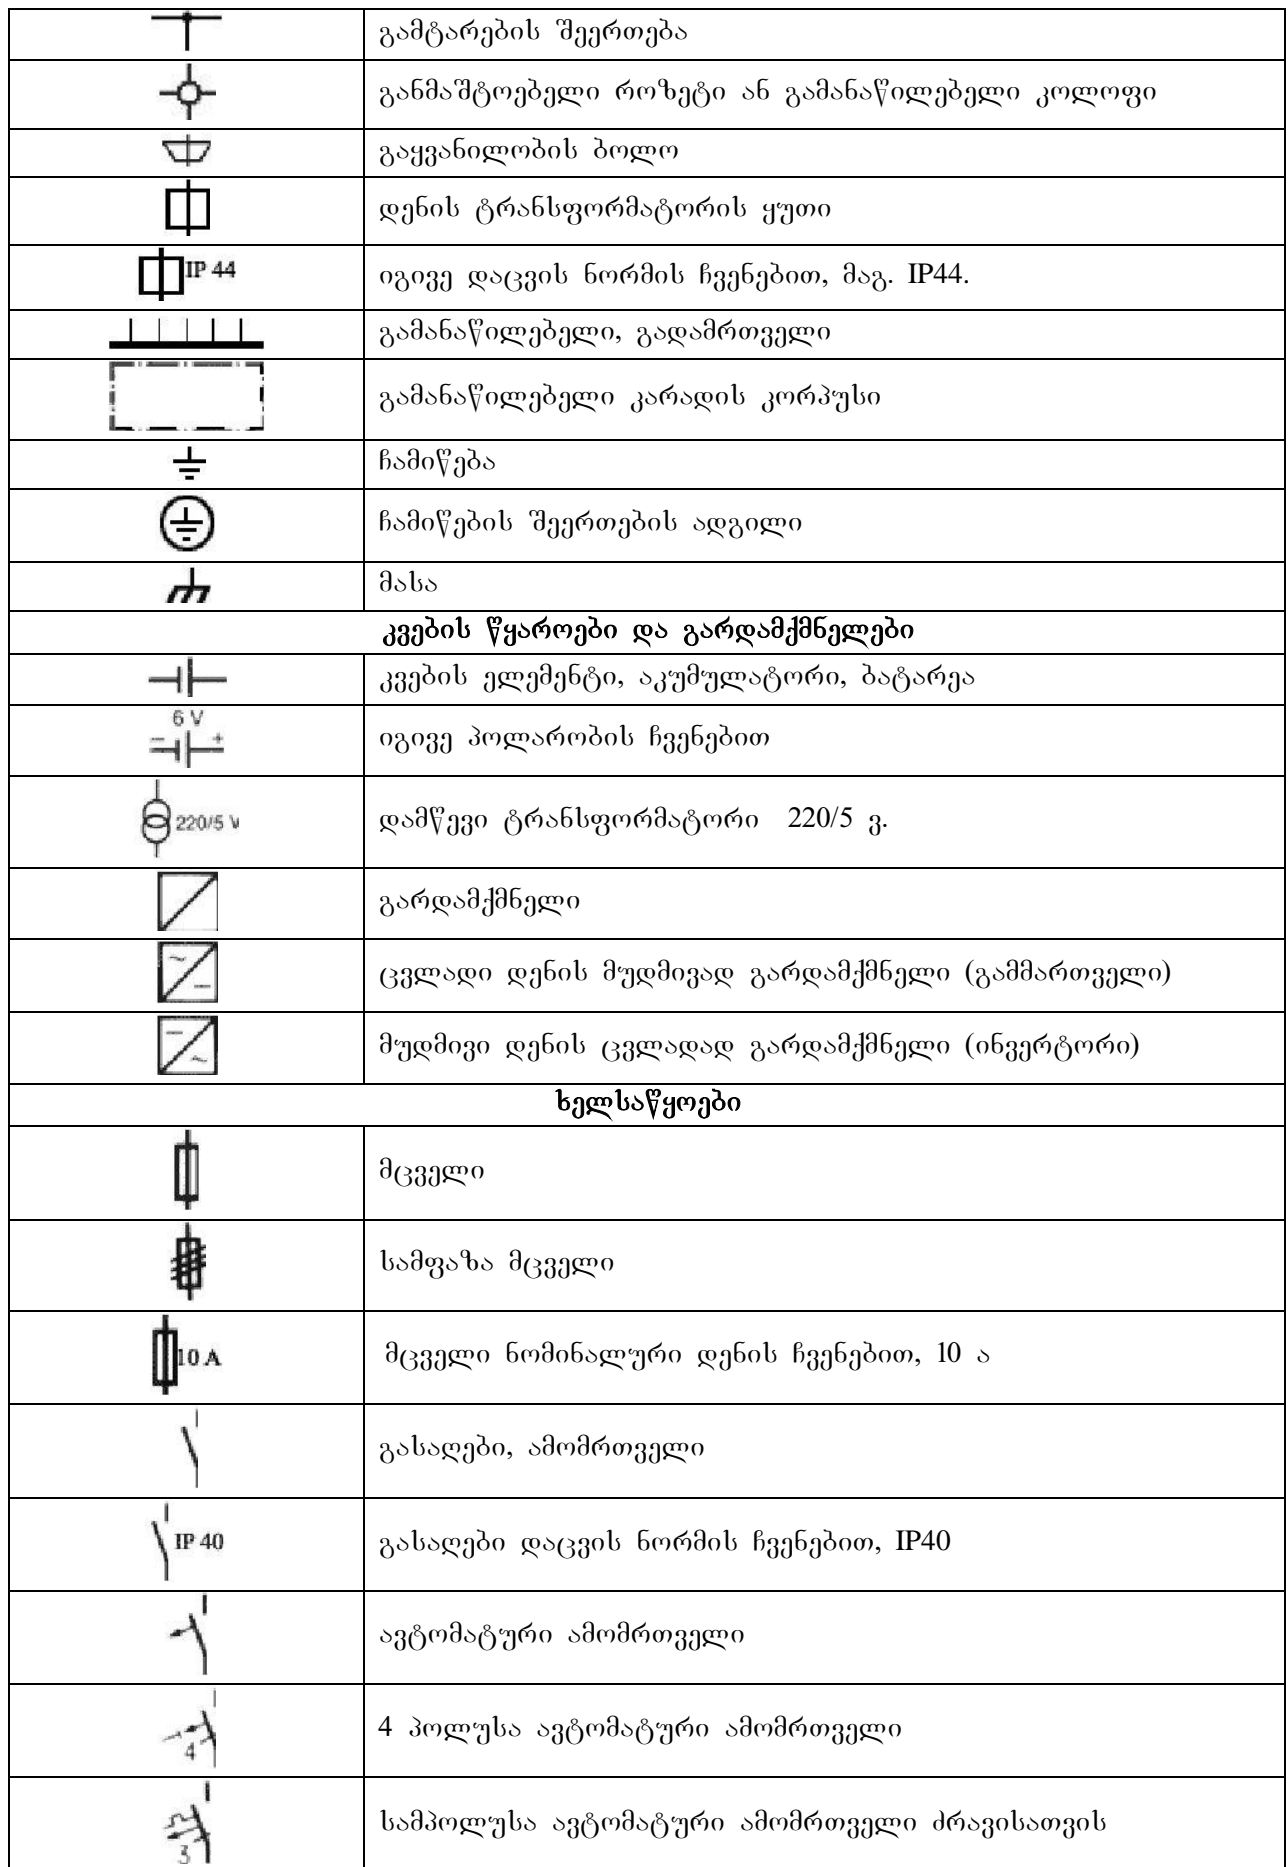 გამტარების შეერთება
განმაშტოებელი როზეტი ან გამანაწილებელი კოლოფი
გაყვანილობის ბოლო
დენის ტრანსფორმატორის ყუთი
IP 44 იგივე დაცვის ნორმის ჩვენებით, მაგ. IP44.
გამანაწილებელი, გადამრთველი
გამანაწილებელი კარადის კორპუსი
ჩამიწება
ჩამიწების შეერთების ადგილი
მასა
კვების წყაროები და გარდამქმნელები
კვების ელემენტი, აკუმულატორი, ბატარეა
6 V
– + იგივე პოლარობის ჩვენებით
220/5 V დამწევი ტრანსფორმატორი 220/5 ვ.
გარდამქმნელი
ცვლადი დენის მუდმივად გარდამქმნელი (გამმართველი)
მუდმივი დენის ცვლადად გარდამქმნელი (ინვერტორი)
ხელსაწყოები
მცველი
სამფაზა მცველი
10 A მცველი ნომინალური დენის ჩვენებით, 10 ა
გასაღები, ამომრთველი
IP 40 გასაღები დაცვის ნორმის ჩვენებით, IP40
ავტომატური ამომრთველი
4 4 პოლუსა ავტომატური ამომრთველი
3 სამპოლუსა ავტომატური ამომრთველი ძრავისათვის